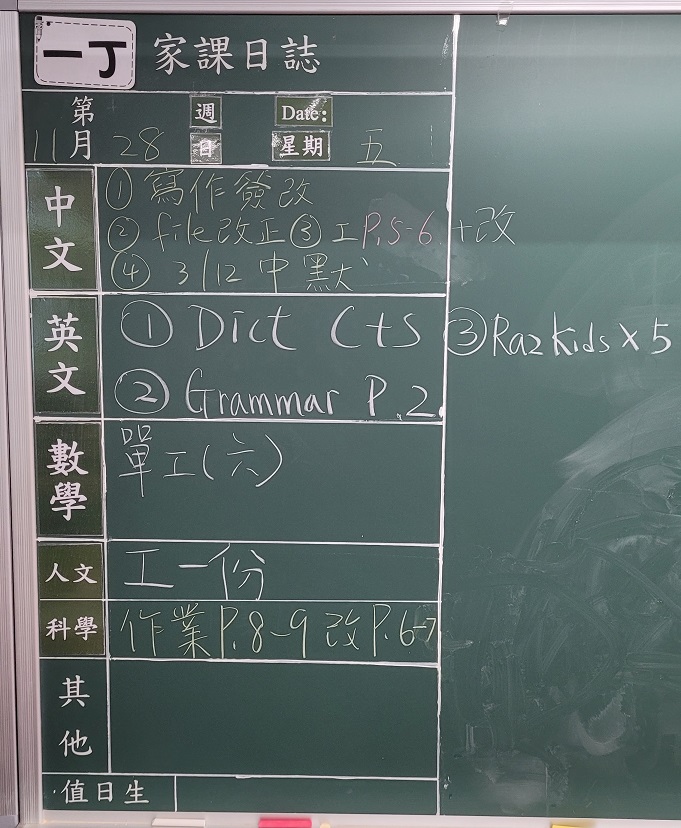 一丁 家課日誌
第 週 Date:
11月 28 日 星期 五
中文
① 寫作簽改
② file改正 ③ 工P.5-6 +改
④ 3/12 中默
英文
① Dict C+S ③ Raz kids × 5
② Grammar P.2
數學
單工(六)
人文 工一份
科學 作業P.8-9 改P.6-7
其他
值日生